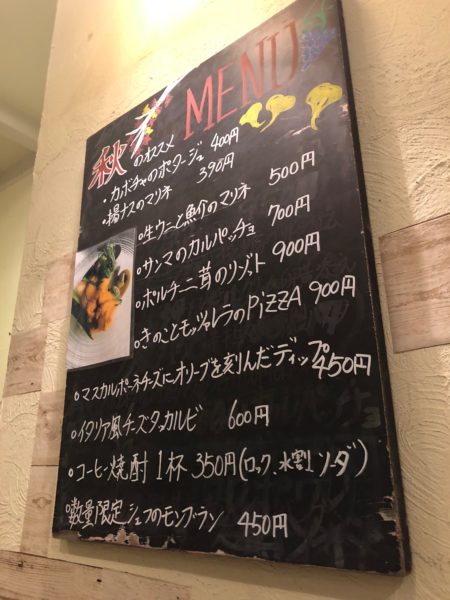 秋 MENU
のオススメ
・カボチャのポタージュ 400円
・揚ナスのマリネ 390円
・生ウニと魚介のマリネ 500円
・サンマのカルパッチョ 700円
・ポルチーニ茸のリゾット 900円
・きのことモッツァレラのPiZZA 900円
・マスカルポーネチーズにオリーブを刻んだディップ 450円
・イタリア風チーズタッカルビ 600円
・コーヒー焼酎 1杯 350円(ロック、水割 ソーダ)
・数量限定シェフのモンブラン 450円